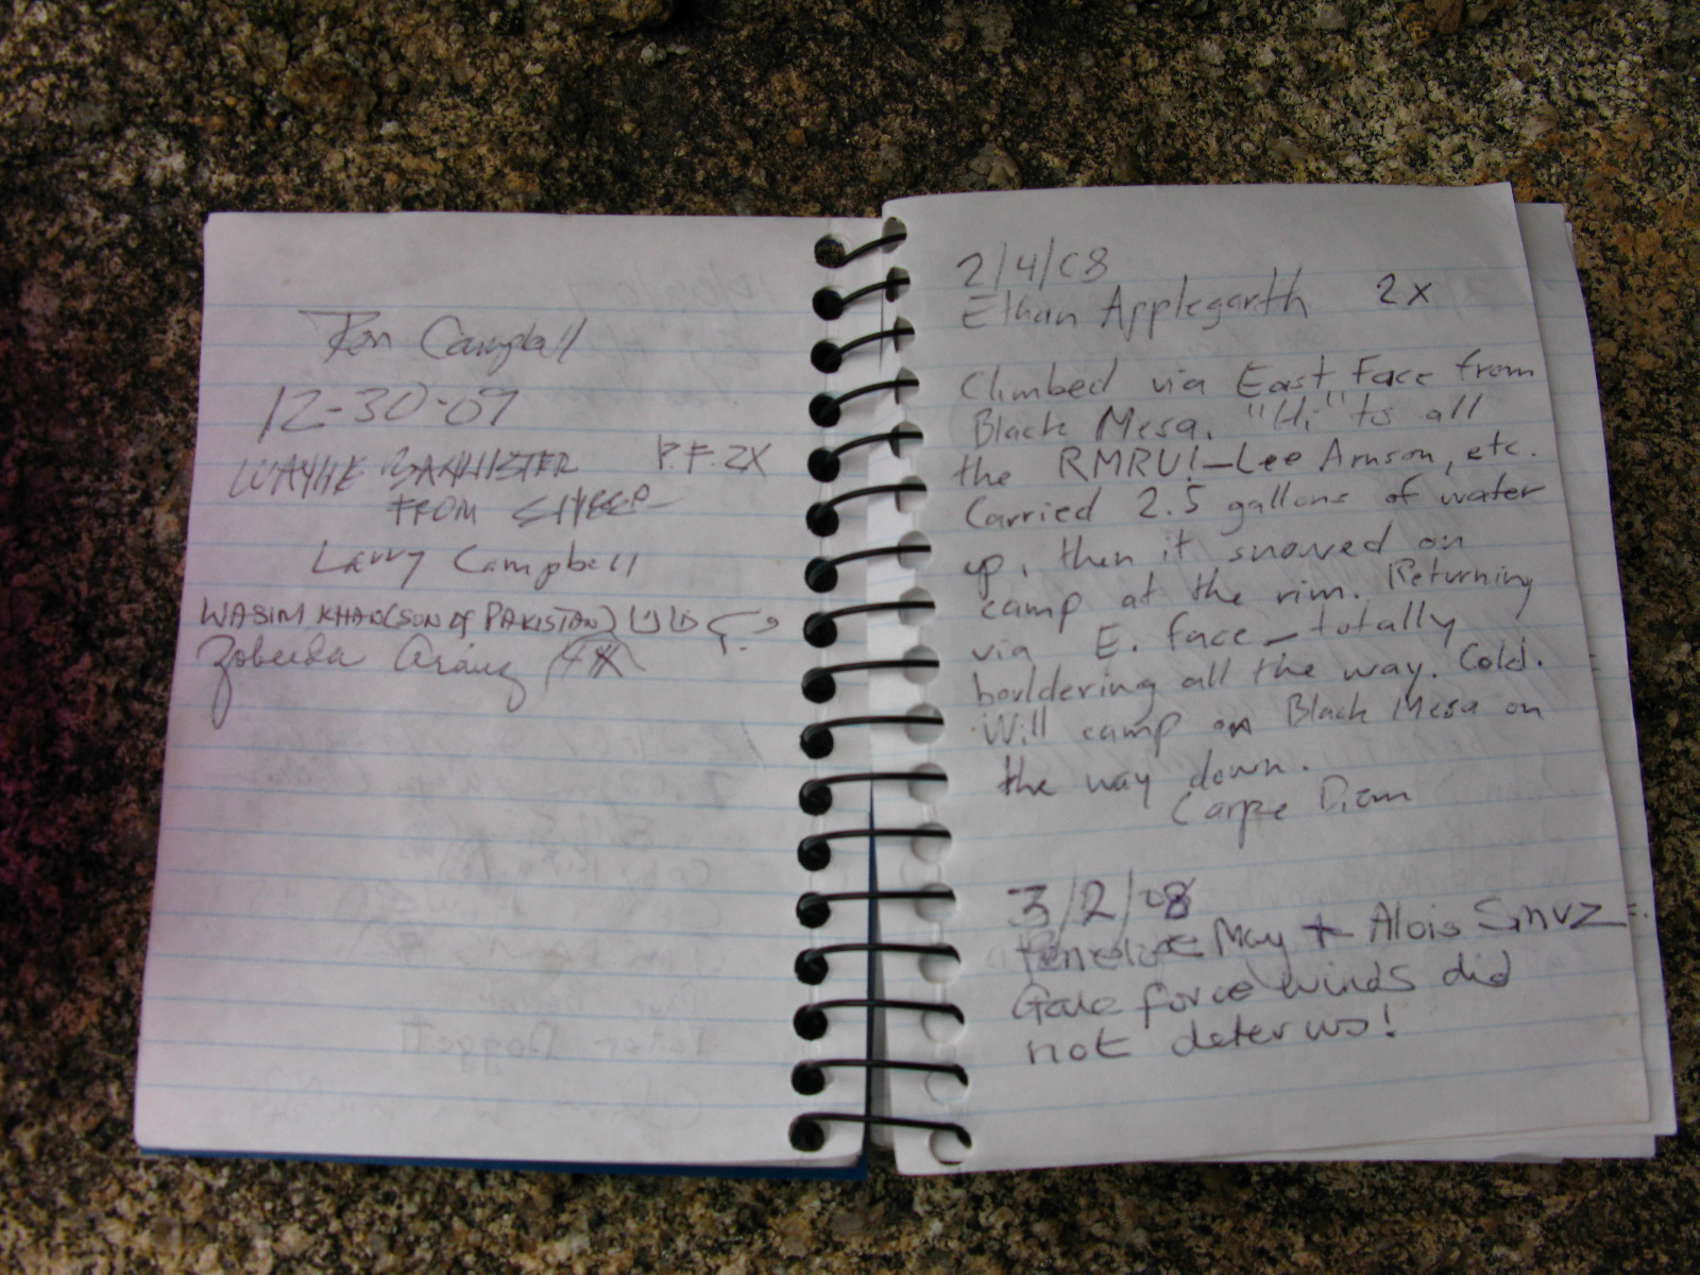 Ron Campbell
12-30-07
WAYNE BANNISTER P.F. 2X
FROM SHEEP
Larry Campbell
WASIM KHAN (SON of PAKISTAN)
Zobeida Arauz
2/4/08
Ethan Applegarth 2x
Climbed via East Face from
Black Mesa. "Hi" to all
the RMRU! - Lee Arnson, etc.
Carried 2.5 gallons of water
up, then it snowed on
camp at the rim. Returning
via E. Face - totally
bouldering all the way. Cold.
Will camp on Black Mesa on
the way down.
Carpe Diem
3/2/08
Penelope May + Alois Smrz
Gale force winds did
not deter us!